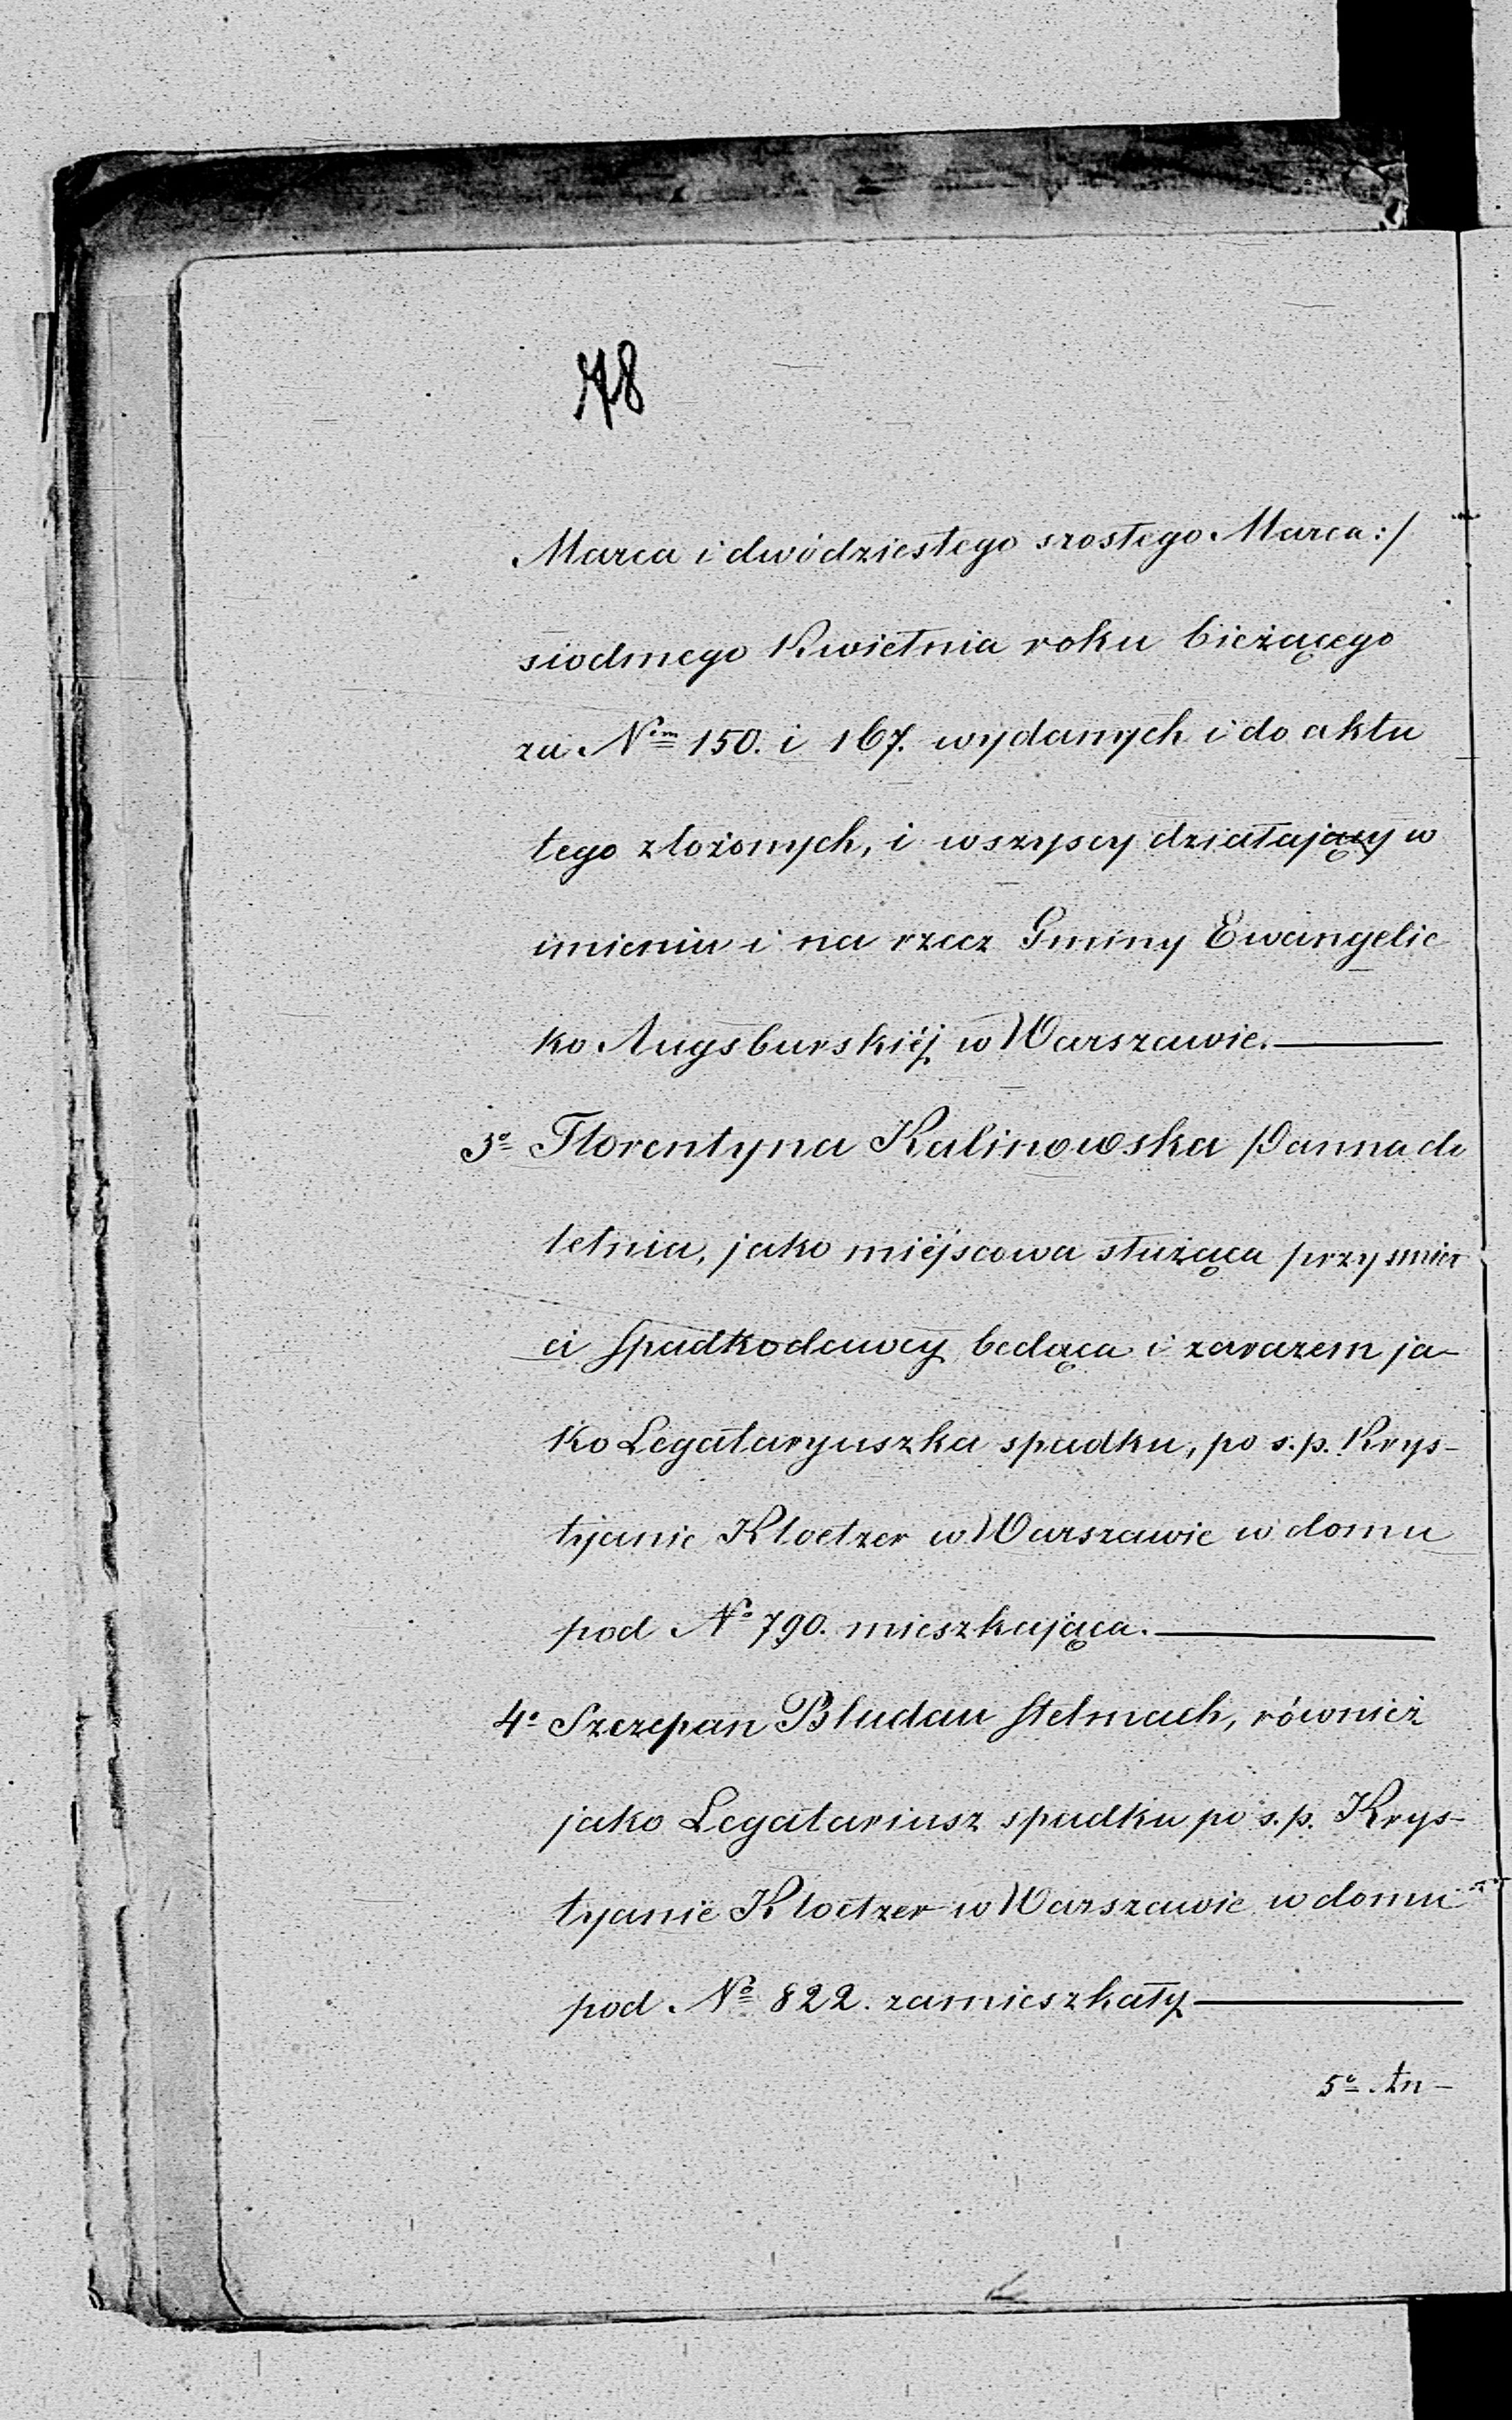 78
Marca i dwódziestego szostego Marca :/
siodmego Kwietnia roku bieżącego
za N<sup>im</sup> 150. i 167. wydanych i do aktu
tego złożonych, i wszyscy działający w
imieniu i na rzecz Gminy Ewangelic
ko Augsburskiéj w Warszawie.
3º Florentyna Kalinowska Panna do
letnia, jako miéjscowa służąca przy śmier
ci Spadkodawcy będąca i zarazem ja-
ko Legataryuszka spadku, po s.p. Krys-
tyjanie Kloetzer w Warszawie w domu
pod Nº 790. mieszkająca.
4º Szczepan Bludau Stelmach, również
jako Legatariusz spadku po s.p. Krys-
tyjanie Kloetzer w Warszawie w domu
pod Nº 822. zamieszkały
5º An-